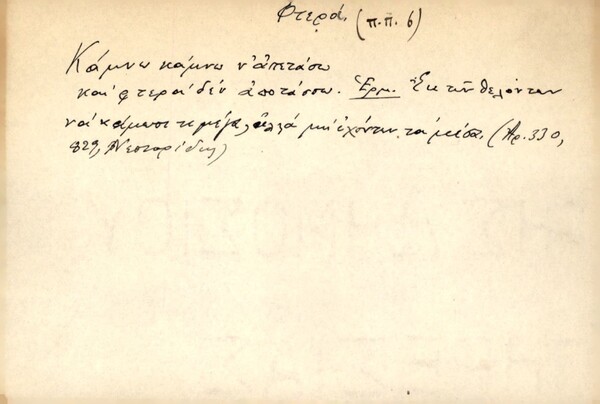 Φτερά. (π.π. 6)
Κάμνω κάμνω ν' ἀπετάσω
και' φτερά δέν ἀποτάσσω. Ἑρμ. Ἐκ τῶν θελόντων
νά κάμωσι τι μέγα, ἀλλά μή ἐχόντων τά μέσα. (Ἀρ. 330,
829, Νεστορίδης)